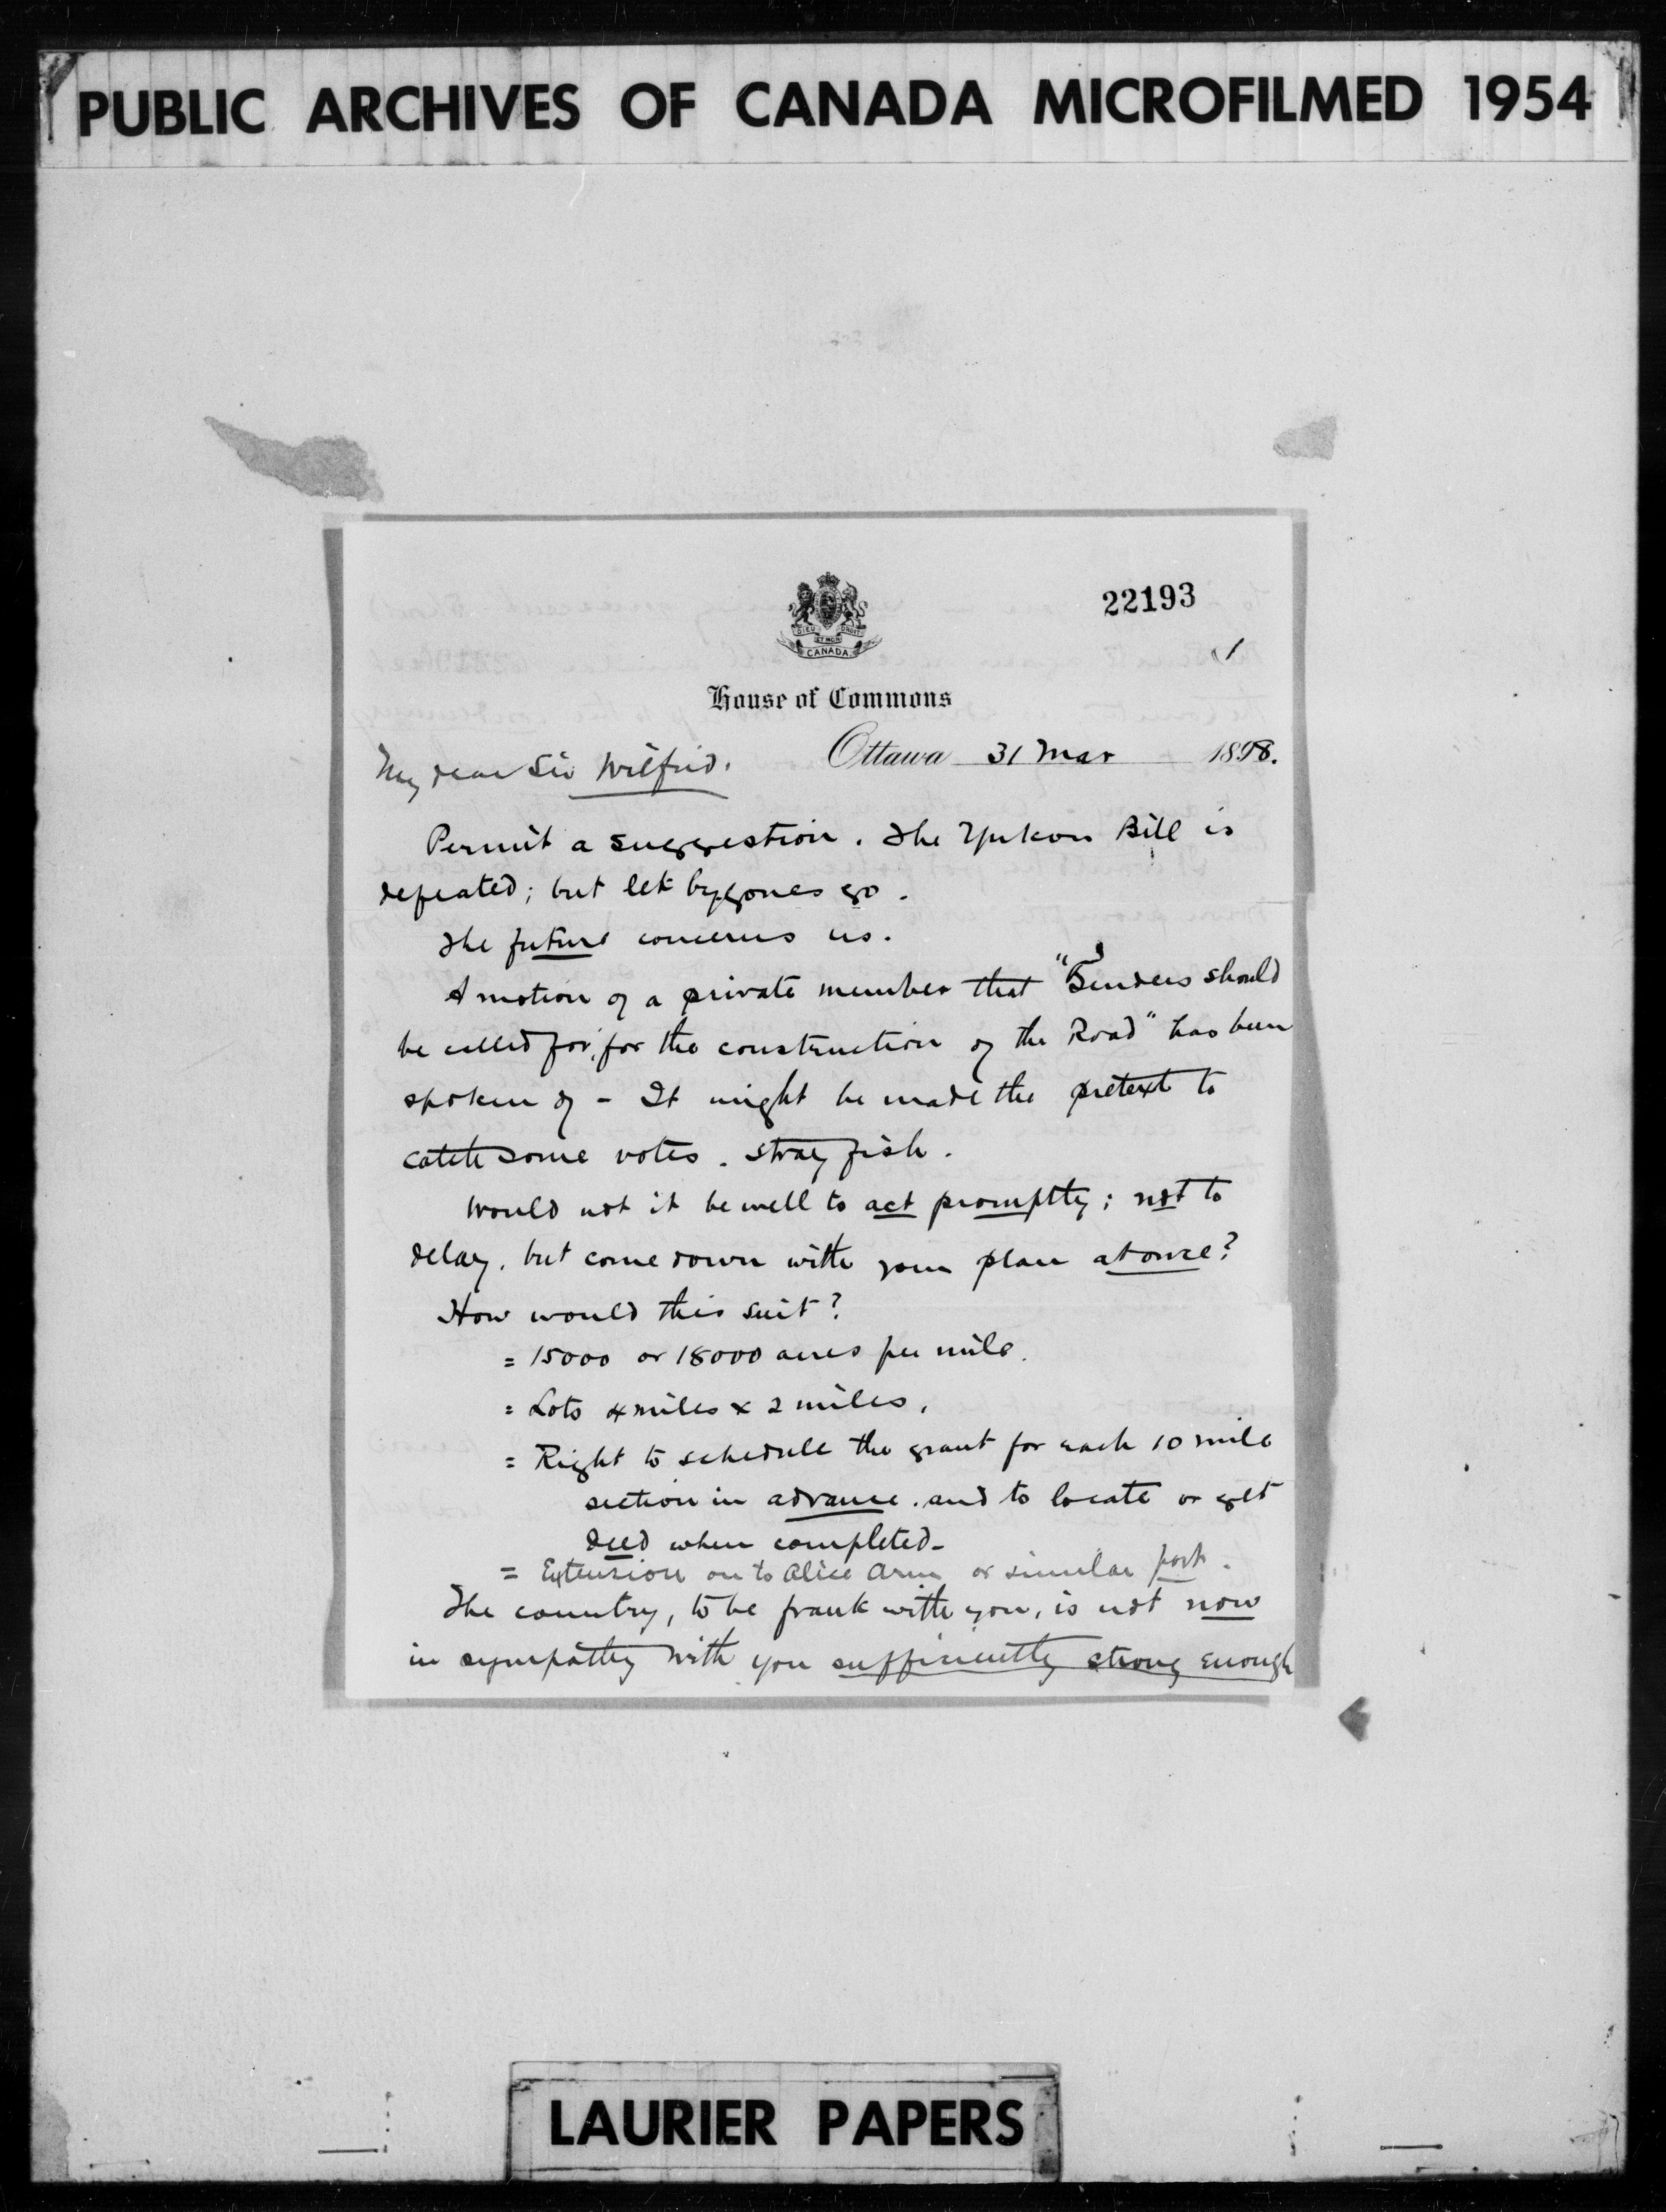 PUBLIC ARCHIVES OF CANADA MICROFILMED 1954
22193
1
DIEU ET MON DROIT
CANADA
House of Commons
Ottawa 31 Mar 1898.
My dear Sir Wilfrid.
Permit a suggestion. The Yukon Bill is
defeated; but let bygones go.
The future concerns us.
A motion of a private member that "Tenders should
be called for, for the construction of the Road" has been
spoken of - It might be made the pretext to
catch some votes. Stray fish.
Would not it be well to act promptly; not to
delay, but come down with your plan at once?
How would this suit?
= 15000 or 18000 acres per mile.
= Lots 4 miles x 2 miles.
= Right to schedule the grant for each 10 mile
section in advance. and to locate or get
deed when completed-
= Extension on to Alice Arm or similar port.
The country, to be frank with you, is not now
in sympathy with you sufficiently strong enough
LAURIER PAPERS